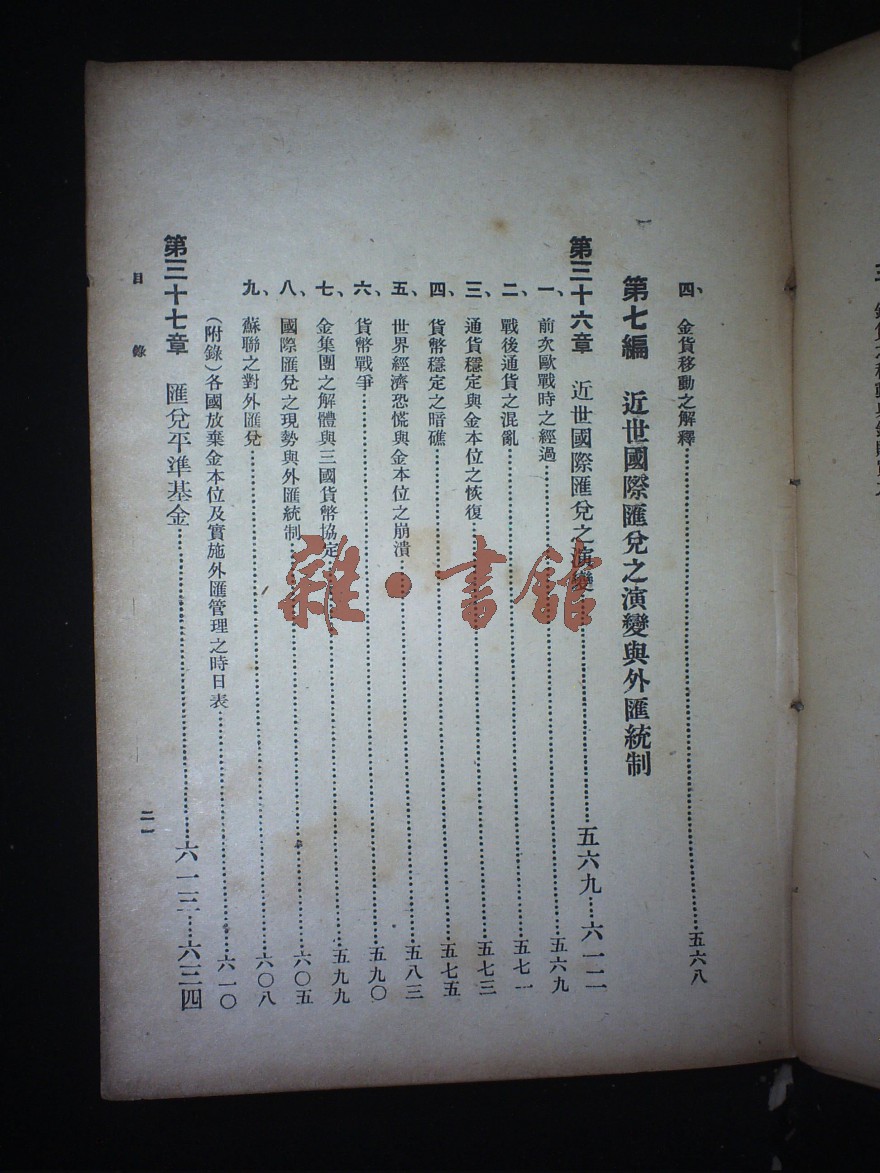 四、金貨移動之解釋……五六八
第七編 近世國際匯兌之演變與外匯統制
第三十六章 近世國際匯兌之演變……五六九…六一二
一、前次歐戰時之經過……五六九
二、戰後通貨之混亂……五七一
三、通貨穩定與金本位之恢復……五七三
四、貨幣穩定之暗礁……五七五
五、世界經濟恐慌與金本位之崩潰……五八三
六、貨幣戰爭……五九〇
七、金集團之解體與三國貨幣協定……五九九
八、國際匯兌之現勢與外匯統制……六〇五
九、蘇聯之對外匯兌……六〇八
(附錄)各國放棄金本位及實施外匯管理之時日表……六一〇
第三十七章 匯兌平準基金……六一三…六三四
目錄
二一
雜·書館